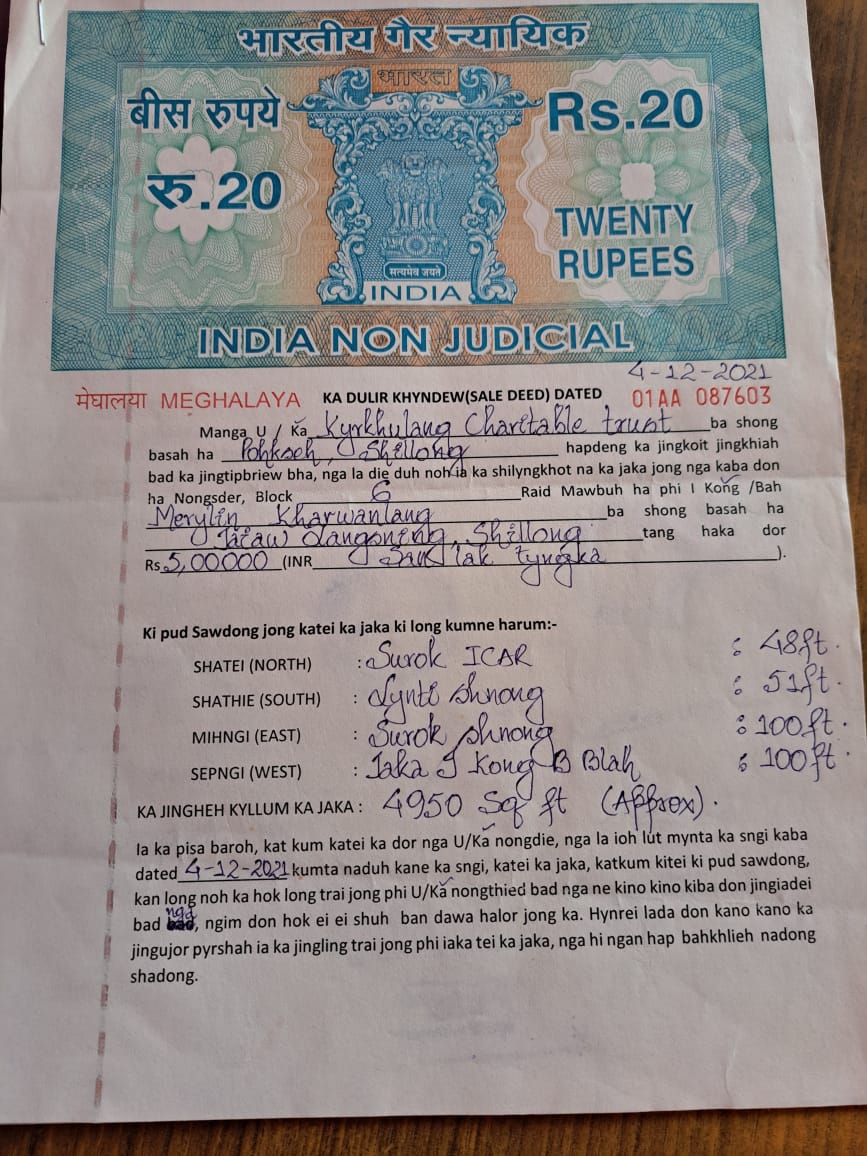 भारतीय गैर न्यायिक
भारत
बीस रुपये Rs.20
रु.20 TWENTY RUPEES
सत्यमेव जयते
INDIA
INDIA NON JUDICIAL
4-12-2021
मेघालया MEGHALAYA KA DULIR KHYNDEW(SALE DEED) DATED 01AA 087603
Manga U / Ka Kyrkhulang Charitable trust ba shong
basah ha Pohkseh, Shillong hapdeng ka jingkoit jingkhiah
bad ka jingtipbriew bha, nga la die duh noh ia ka shilyngkhot na ka jaka jong nga kaba don
ha Nongsder, Block 6 Raid Mawbuh ha phi I Kong /Bah
Merylin Kharwanlang ba shong basah ha
Jaiaw Langsning, Shillong tang haka dor
Rs 5,00000 (INR San lak tyngka ).
Ki pud Sawdong jong katei ka jaka ki long kumne harum:-
SHATEI (NORTH) : Surok ICAR : 48ft.
SHATHIE (SOUTH) : Lynti shnong : 51ft.
MIHNGI (EAST) : Surok shnong : 100ft.
SEPNGI (WEST) : Jaka I Kong B Blah : 100ft.
KA JINGHEH KYLLUM KA JAKA : 4950 Sq ft (Approx).
Ia ka pisa baroh, kat kum katei ka dor nga U/Ka nongdie, nga la ioh lut mynta ka sngi kaba
dated 4-12-2021 kumta naduh kane ka sngi, katei ka jaka, katkum kitei ki pud sawdong,
kan long noh ka hok long trai jong phi U/Ka nongthied bad nga ne kino kino kiba don jingiadei
bad nga, ngim don hok ei ei shuh ban dawa halor jong ka. Hynrei lada don kano kano ka
jingujor pyrshah ia ka jingling trai jong phi iaka tei ka jaka, nga hi ngan hap bahkhlieh nadong
shadong.